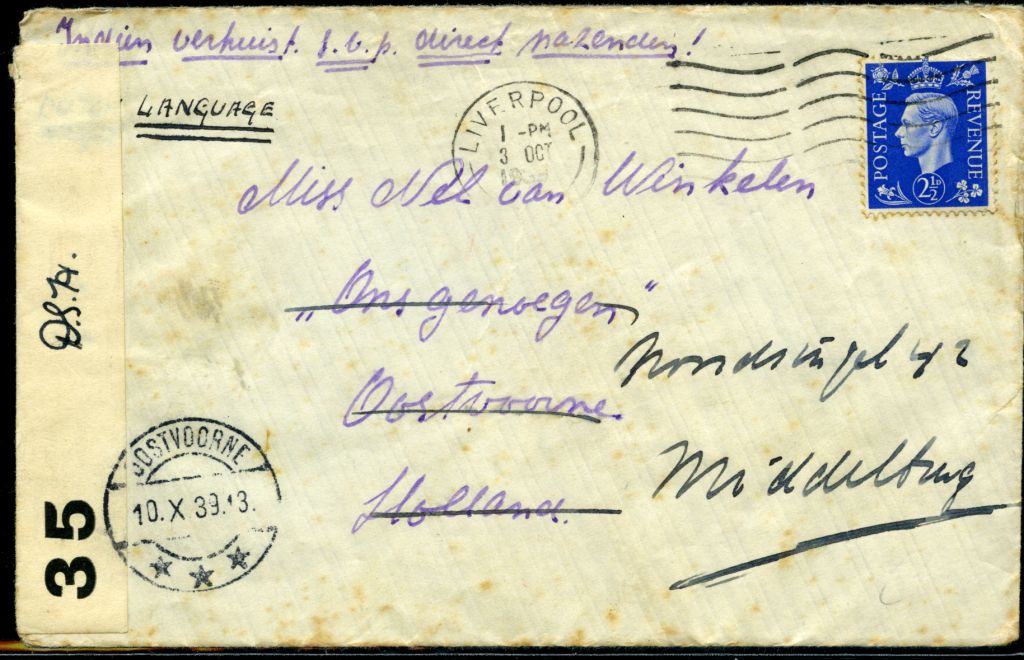 Indien verhuist s.v.p. direct nazenden!
LANGUAGE
LIVERPOOL
1 - PM
3 OCT
POSTAGE REVENUE
2½D
Miss Nel van Winkelen
„Ons genoegen"
Oostvoorne.
Holland.
Noordsingel 42
Middelburg
D.S.H.
35
OOSTVOORNE
10.X.39.13.